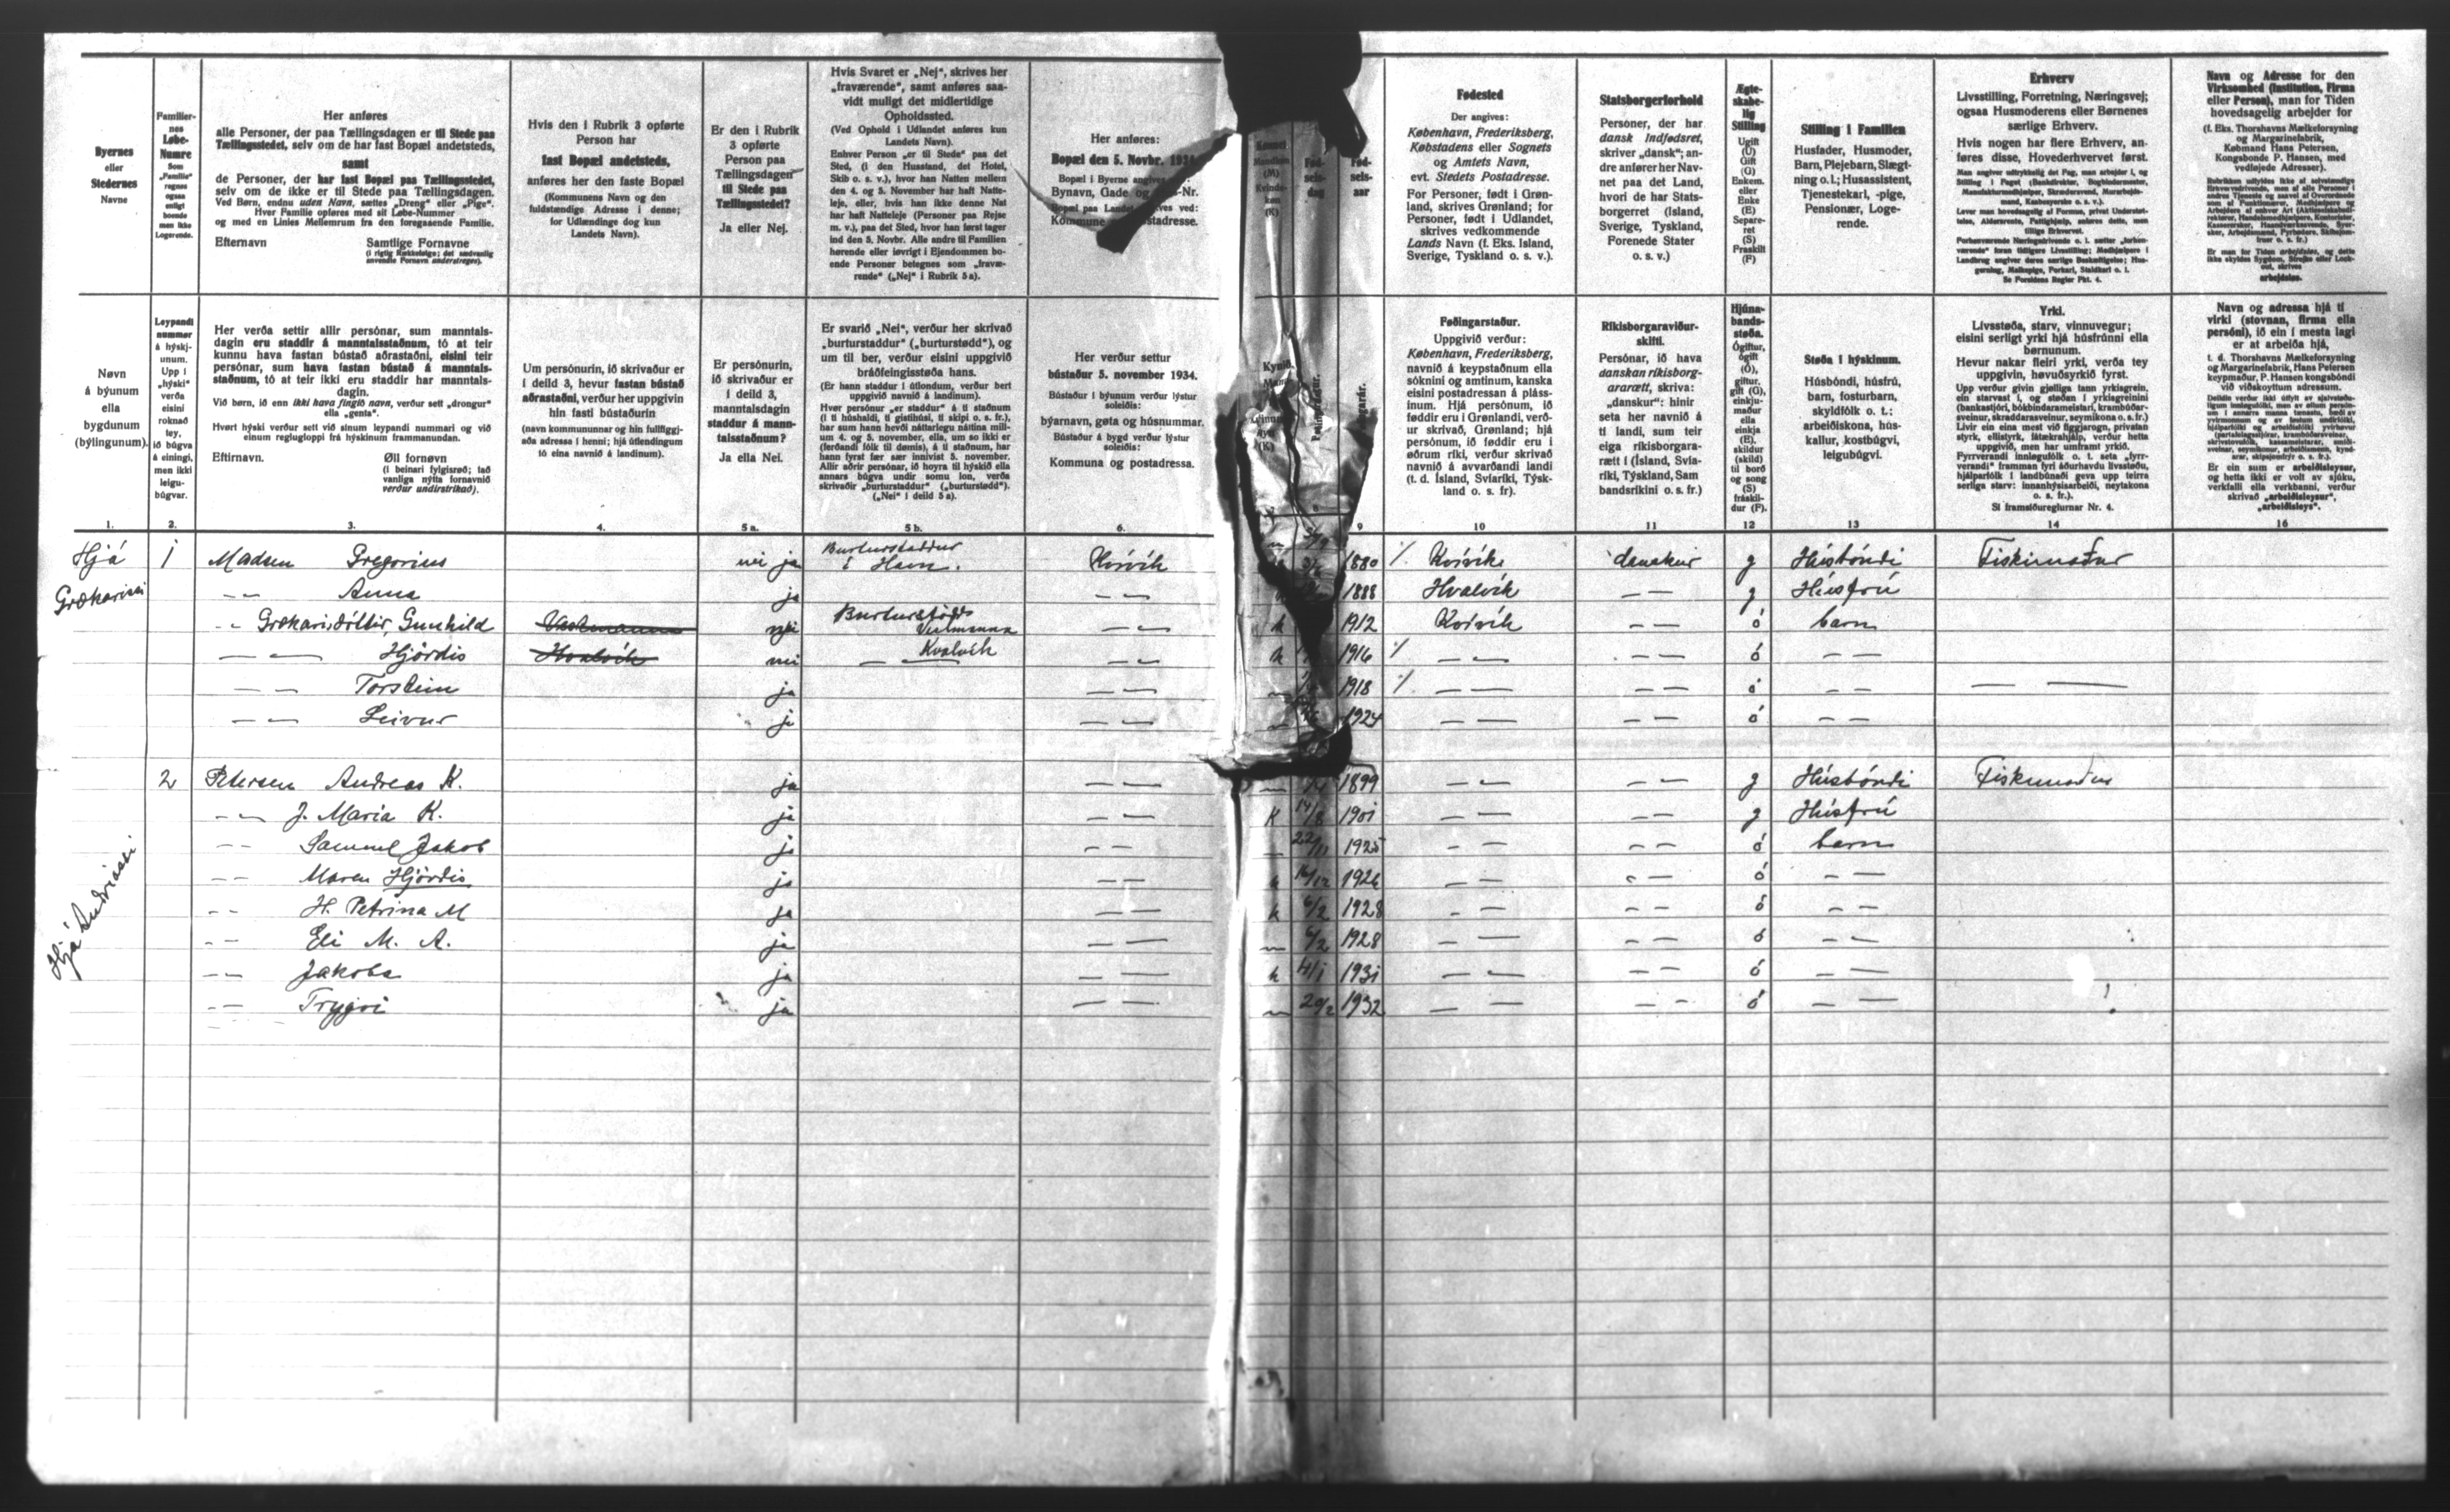 Byernes
eller
Stedernes
Navne
Familier-
nes
Løbe-
Numre
Som
„Familie"
regnes
ogsaa
enligt
boende
men ikke
Logerende.
Her anføres
alle Personer, der paa Tællingsdagen er til Stede paa
Tællingsstedet, selv om de har fast Bopæl andetsteds,
samt
de Personer, der har fast Bopæl paa Tællingsstedet,
selv om de ikke er til Stede paa Tællingsdagen.
Ved Børn, endnu uden Navn, sættes „Dreng" eller „Pige".
Hver Familie opføres med sit Løbe-Nummer
og med en Linies Mellemrum fra den foregaaende Familie.
Efternavn Samtlige Fornavne
(i rigtig Rækkefølge; det sædvanlig
anvendte Fornavn understreges).
Hvis den i Rubrik 3 opførte
Person har
fast Bopæl andetsteds,
anføres her den faste Bopæl
(Kommunens Navn og den
fuldstændige Adresse i denne;
for Udlændinge dog kun
Landets Navn).
Er den i Rubrik
3 opførte
Person paa
Tællingsdagen
til Stede paa
Tællingsstedet?
Ja eller Nej.
Hvis Svaret er „Nej", skrives her
„fraværende", samt anføres saa-
vidt muligt det midlertidige
Opholdssted.
(Ved Ophold i Udlandet anføres kun
Landets Navn).
Enhver Person „er til Stede" paa det
Sted, (i den Husstand, det Hotel,
Skib o. s. v.), hvor han Natten mellem
den 4. og 5. November har haft Natte-
leje, eller, hvis han ikke denne Nat
har haft Natteleje (Personer paa Rejse
m. v.), paa det Sted, hvor han først tager
ind den 5. Novbr. Alle andre til Familien
hørende eller iøvrigt i Ejendommen bo-
ende Personer betegnes som „fravæ-
rende" („Nej" i Rubrik 5 a).
Her anføres:
Bopæl den 5. Novbr. 1934
Bopæl i Byerne angives
Bynavn, Gade og -Nr.
Bopæl paa Landet ves ved:
Kommune ostadresse.
Fødested
Der angives:
København, Frederiksberg,
Købstadens eller Sognets
og Amtets Navn,
evt. Stedets Postadresse.
For Personer, født i Grøn-
land, skrives Grønland; for
Personer, født i Udlandet,
skrives vedkommende
Lands Navn (f. Eks. Island,
Sverige, Tyskland o. s. v.).
Statsborgerforhold
Personer, der har
dansk Indfødsret,
skriver „dansk"; an-
dre anfører her Nav-
net paa det Land,
hvori de har Stats-
borgerret (Island,
Sverige, Tyskland,
Forenede Stater
o. s. v.)
Ægte-
skabe-
lig
Stilling
Ugift
(U)
Gift
(G)
Enkem.
eller
Enke
(E)
Separe-
ret
(S)
Fraskilt
(F)
Stilling i Familien
Husfader, Husmoder,
Barn, Plejebarn, Slægt-
ning o.l.; Husassistent,
Tjenestekarl, -pige,
Pensionær, Loge-
rende.
Erhverv
Livsstilling, Forretning, Næringsvej;
ogsaa Husmoderens eller Børnenes
særlige Erhverv.
Hvis nogen har flere Erhverv, an-
føres disse, Hovederhvervet først.
Se Forsidens Regler Pkt. 4.
Navn og Adresse for den
Virksomhed (Institution, Firma
eller Person), man for Tiden
hovedsagelig arbejder for
(f. Eks. Thorshavns Mælkeforsyning
og Margarinefabrik,
Købmand Hans Petersen,
Kongsbonde P. Hansen, med
vedføjede Adresser).
arbejdsløs.
Nøvn
á býunum
ella
bygdunum
(býlingunum).
Leypandi
nummer
á hýskj-
unum.
Upp i
„hýski"
verða
eisini
roknað
tey,
ið búgva
á einingi,
men ikki
leigu-
búgvar.
Her verða settir allir persónar, sum manntals-
dagin eru staddir á manntalsstaðnum, tó at teir
kunnu hava fastan bústað aðrastaðni, eisini teir
persónar, sum hava fastan bústað á manntals-
staðnum, tó at teir ikki eru staddir har manntals-
dagin.
Við børn, ið enn ikki hava fingið navn, verður sett „drongur"
ella „genta".
Hvørt hýski verður sett við sinum leypandi nummari og við
einum reglugloppi frá hýskinum frammanundan.
Eftirnavn. Øll fornøvn
(i beinari fylgisrøð; tað
vanliga nýtta fornavnið
verður undirstrikað).
Um persónurin, ið skrivaður er
i deild 3, hevur fastan bústað
aðrastaðni, verður her uppgivin
hin fasti bústaðurin
(navn kommununnar og hin fullfiggj-
aða adressa i henni; hjá útlendingum
tó eina navnið á landinum).
Er persónurin,
ið skrivaður er
i deild 3,
manntalsdagin
staddur á mann-
talsstaðnum?
Ja ella Nei.
Er svarið „Nei", verður her skrivað
„burturstaddur" („burturstødd"), og
um til ber, verður eisini uppgivið
bráðfeingisstøða hans.
(Er hann staddur i útlondum, verður bert
uppgivið navnið á landinum).
Hvør persónur „er staddur" á ti staðnum
(i ti húshaldi, ti gistihúsi, ti skipi o. s. fr.),
har sum hann hevði náttarlegu náttina mill-
um 4. og 5. november, ella, um so ikki er
(ferðandi fólk til dømis), á ti staðnum, har
hann fyrst fær sær innivist 5. november.
Allir aðrir persónar, ið hoyra til hýskið ella
annars búgva undir somu lon, verða
skrivaðir „burturstaddur" („burturstødd").
(„Nei" i deild 5 a).
Her verður settur
bústaður 5. november 1934.
Bústaður i býunum verður lýstur
soleiðis:
býarnavn, gøta og húsnummar.
Bústaður á bygd verður lýstur
soleiðis:
Kommuna og postadressa.
Føðingarstaður.
Uppgivið verður:
København, Frederiksberg,
navnið á keypstaðnum ella
sóknini og amtinum, kanska
eisini postadressan á pláss-
inum. Hjá persónum, ið
føddir eru i Grønlandi, verð-
ur skrivað, Grønland; hjá
persónum, ið føddir eru i
øðrum riki, verður skrivað
navnið á avvarðandi landi
(t. d. Ísland, Svíaríki, Týsk-
land o. s. fr).
Ríkisborgaraviður-
skifti.
Persónar, ið hava
danskan rikisborg-
ararætt, skriva:
„danskur": hinir
seta her navnið á
ti landi, sum teir
eiga ríkisborgara-
rætt i (Ísland, Svía-
ríki, Týskland, Sam
bandsríkini o. s. fr.)
Hjúna-
bands-
støða.
Ógiftur,
ógift
(Ó),
giftur,
gift (G),
einkju-
maður
ella
einkja
(E).
skildur
(skild)
til borð
og song
(S)
fráskil-
dur (F).
Støða i hýskinum.
Húsbóndi, húsfrú,
barn, fosturbarn,
skyldfólk o. t.;
arbeiðiskona, hús-
kallur, kostbúgvi,
leigubúgvi.
Yrki.
Livsstøða, starv, vinnuvegur;
eisini serligt yrki hjá húsfrúnni ella
børnunum.
Hevur nakar fleiri yrki, verða tey
uppgivin, høvuðsyrkið fyrst.
Si framsiðureglurnar Nr. 4.
Navn og adressa hjá ti
virki (stovnan, firma ella
persóni), ið ein i mesta lagi
er at arbeiða hjá,
t. d. Thorshavns Mælkeforsyning
og Margarinefabrik, Hans Petersen
keypmaður, P. Hansen kongsbóndi
við viðskoyttum adressum.
Er ein sum er arbeiðsleysur,
og hetta ikki er volt av sjúku,
verkfalli ella verkbanni, verður
skrivað „arbeiðisleysur",
„arbeiðisleys".
1. 2. 3. 4. 5 a. 5 b. 6. 9 10 11 12 13 14 16
Hjá 1 Madsen Gregorius nei ja Burturstaddur í Havn. Kvívík 1880 % Kvívík danskur g Húsbóndi Fiskimaður
Grækarissi -- Anna ja -- 1888 Hvalvík -- g Húsfrú
-- Grækarisdóttir, Gunhild Vestmanna nei Burturstødd Vestmanna -- k 1912 Kvívík -- ó barn
-- Hjördis Hvalvík nei -- Kvalvík -- k 1916 % -- -- ó --
-- Torstein ja -- m 1918 % -- -- ó -- --
-- Leivur ja -- m 1924 -- -- ó --
2 Petersen Andreas K. ja -- m 1899 -- -- g Húsbóndi Fiskimaður
Hjá Andriasi
-- J. Maria K. ja -- K 14/8 1901 -- -- g Húsfrú
-- Samuel Jakob ja -- 22/11 1925 -- -- ó barn
-- Maren Hjördis ja -- k 16/12 1926 -- -- ó --
-- H. Petrina M ja -- k 6/2 1928 -- -- ó --
-- Eli M. A. ja -- m 6/2 1928 -- -- ó --
-- Jakoba ja -- k 4/1 1931 -- -- ó --
-- Trygvi ja -- m 20/2 1932 -- -- ó --